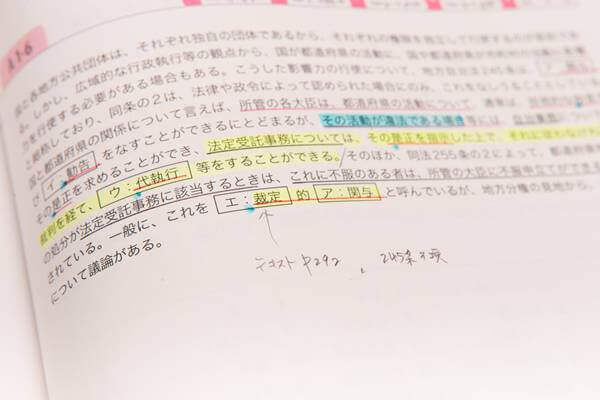 A1-6
国と各地方公共団体は、それぞれ独自の団体であるから、それぞれの機関を指定して行使するのが原則であ
る。しかし、広域的な行政執行等の観点から、国が都道府県の活動に、国や都道府県が市町村の活動に影響
力を行使する必要がある場合もある。こうした影響力の行使について、地方自治法245条は、
と総称しており、同条の2は、法律や政令によって認められた場合にのみ、これをなしうること
国と都道府県の関係について言えば、所管の各大臣は、都道府県の活動について、適
び イ：勧告 をなすことができるにとどまるが、その活動が違法である場合等には、
その是正を求めることができ、法定受託事務については、その是正を指示した上で、それに従わなけれ
裁判を経て、ウ：代執行 等をすることができる。そのほか、同法255条の2によって、都道府県
の処分が法定受託事務に該当するときは、これに不服のある者は、所管の大臣に不服申立てができ
されている。一般に、これを エ：裁定 的 ア：関与 と呼んでいるが、地方分権の見地から、
について議論がある。
テキスト P292 、245条